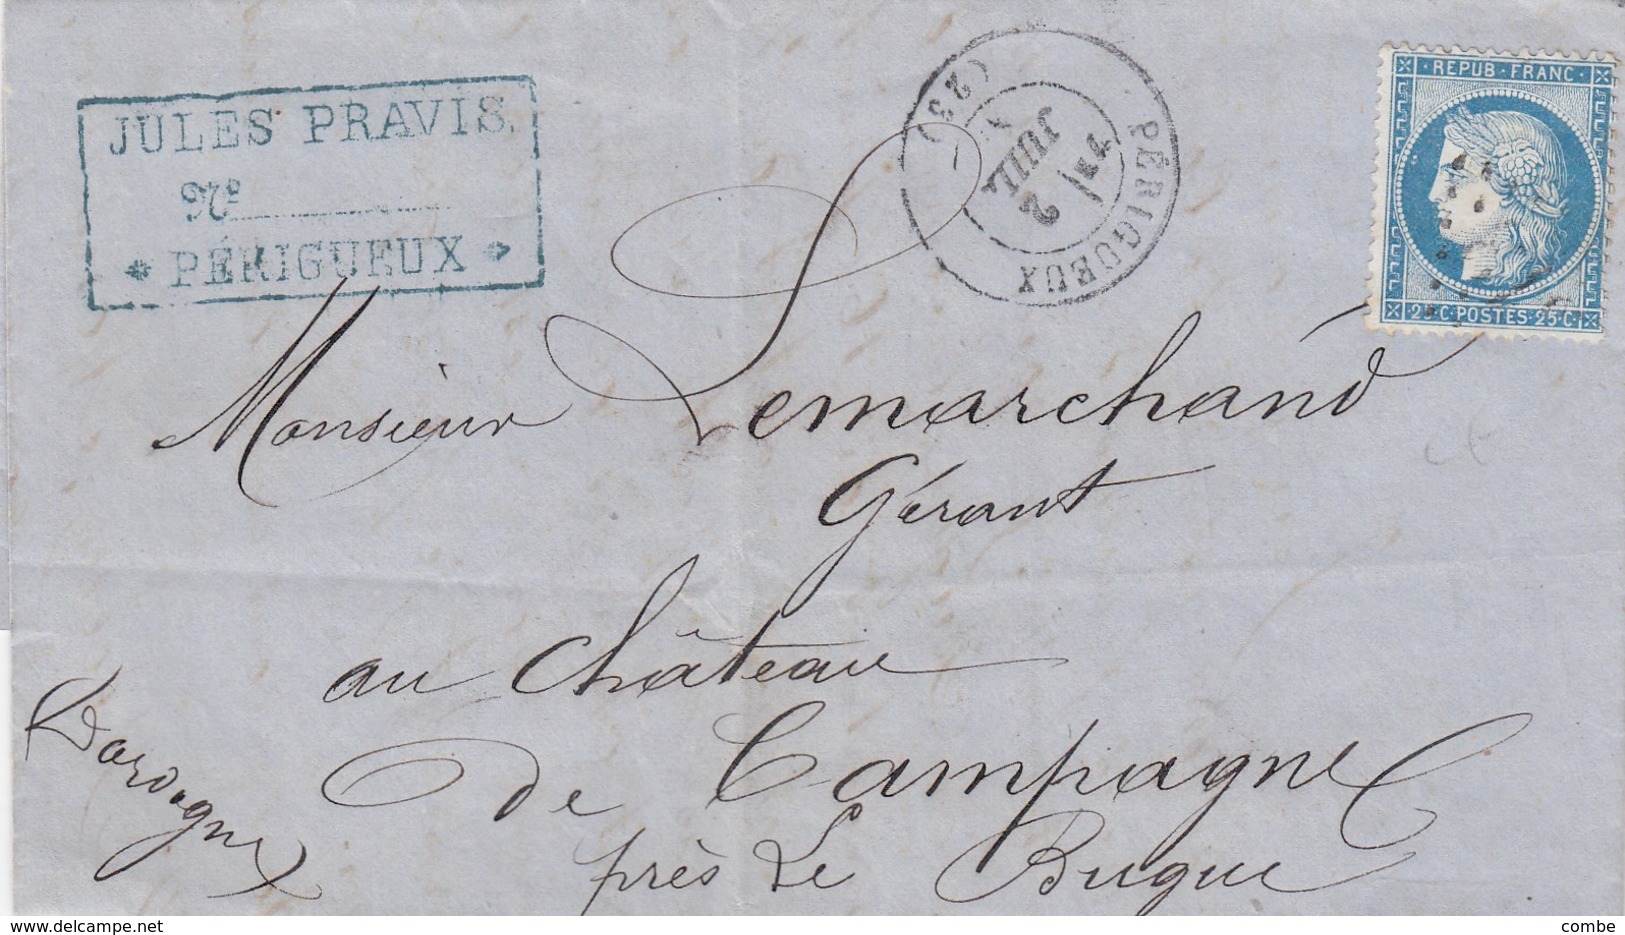 JULES PRAVIS.
No
* PÉRIGUEUX *
PÉRIGUEUX
(23)
2
JUIL.
REPUB · FRANC
25 · C · POSTES · 25 C
Monsieur Lemarchand
Gérant
au Château
de Campagne
près Le Bugue
Dordogne
delcampe.net
combe